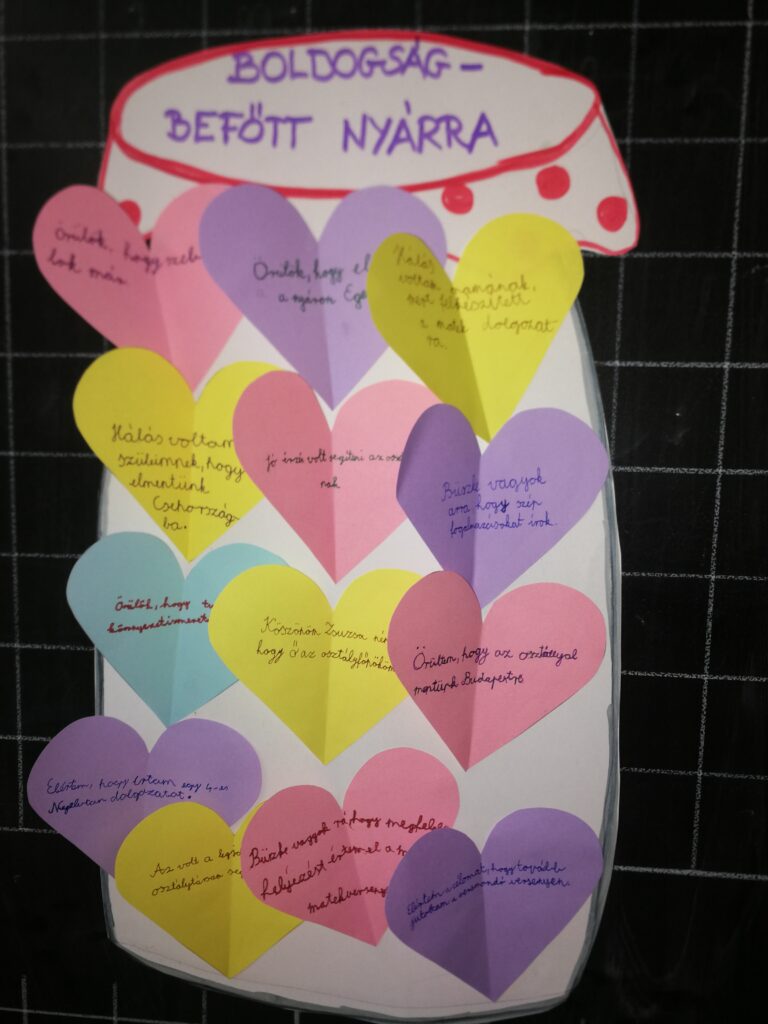 BOLDOGSÁG-
BEFŐTT NYÁRRA
Örülök, hogy
lok már.
Örülök, hogy el
a nyáron
Hálás
voltam mamának,
mert felkészített
a matek dolgozat
ra.
Hálás voltam
szüleimnek, hogy
elmentünk
Csehország-
ba.
Jó érzés volt segíteni az
nak
Büszke vagyok
arra hogy szép
fogalmazásokat írok.
Örülök, hogy
környezetismeret
Köszönöm Zsuzsa
hogy ő az osztályfőnököm
Örültem, hogy az osztállyal
mentünk Budapestre
Elértem, hogy írtam egy 4-es
Nyelvtan dolgozatot.
Az volt a
osztálytársam
Büszke vagyok rá, hogy
helyezést értem el a
matekverseny
Elértem a célomat, hogy tovább
jutottam a versmondó versenyen.